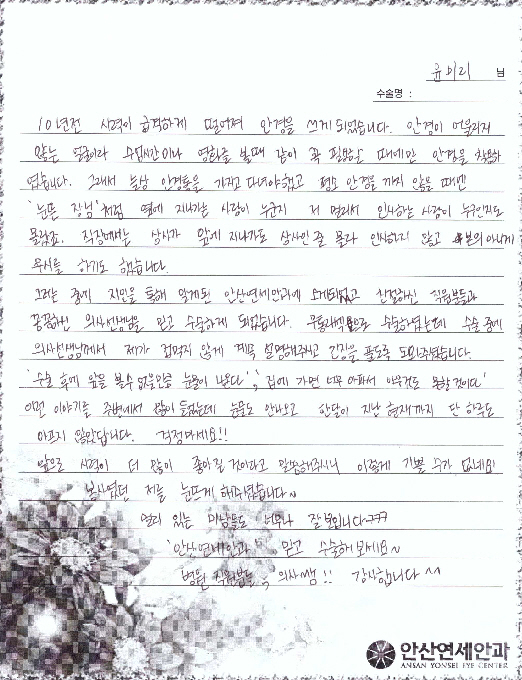 윤미리 님
수술명 :
10년전 시력이 급격하게 떨어져 안경을 쓰게 되었습니다. 안경이 어울리지
않는 얼굴이라 수업시간이나 영화를 볼때 같이 꼭 필요한 때에만 안경을 착용하
였습니다. 그래서 늘상 안경통을 가지고 다녀야했고 평소 안경을 끼지 않을 때면
'눈뜬 장님'처럼 옆에 지나가는 사람이 누군지 저 멀리서 인사하는 사람이 누구인지도
몰랐죠. 직장에서는 상사가 앞에 지나가도 상사인 줄 몰라 인사하지 않고 본의 아니게
무시를 하기도 했습니다.
그러는 중에 지인을 통해 알게된 안산연세안과에 오게되었고 친절하신 직원분들과
꼼꼼하신 의사선생님을 믿고 수술하게 되었습니다. 수술하였는데 수술 중에
의사선생님께서 제가 겁먹지 않게 계속 설명해주시고 긴장을 풀도록 도와주셨습니다.
'수술 후에 앞을 볼수 없을만큼 눈물이 나온다', '집에 가면 너무 아파서 아무것도 못할 것이다'
이런 이야기를 주변에서 많이 들었는데 눈물도 안나오고 한달이 지난 현재까지 단 하루도
아프지 않았답니다. 걱정마세요!!
앞으로 시력이 더 많이 좋아질 것이라고 말씀해주시니 이렇게 기쁠 수가 없네요!
봉사였던 저를 눈뜨게 해주셨습니다~
멀리 있는 미남들도 너무나 잘 보입니다ㅋㅋㅋ
"안산연세안과" 믿고 수술해 보세요~
병원 직원분들, 의사쌤!! 감사합니다^^
안산연세안과
ANSAN YONSEI EYE CENTER